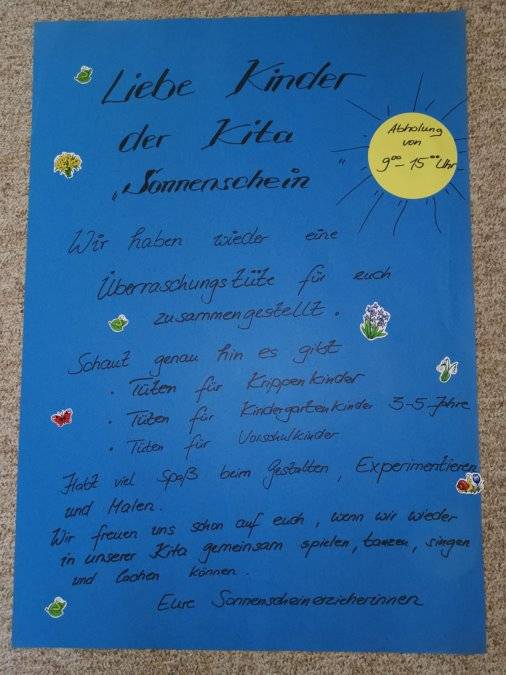 Liebe Kinder
der Kita
„Sonnenschein"
Abholung
von
9⁰⁰ - 15⁰⁰ Uhr
Wir haben wieder eine
Überraschungstüte für euch
zusammengestellt.
Schaut genau hin es gibt
• Tüten für Krippenkinder
• Tüten für Kindergartenkinder 3-5 Jahre
• Tüten für Vorschulkinder
Habt viel Spaß beim Gestalten, Experimentieren
und Malen.
Wir freuen uns schon auf euch, wenn wir wieder
in unserer Kita gemeinsam spielen, tanzen, singen
und lachen können.
Eure Sonnenscheinerzieherinnen